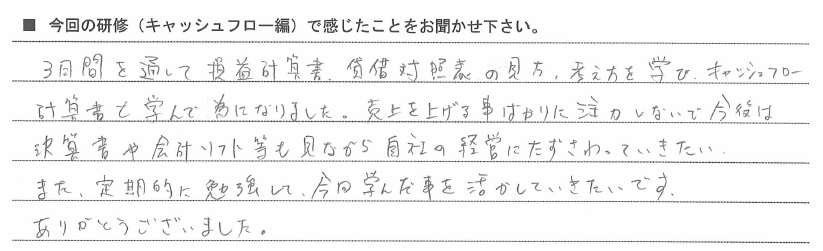 ■ 今回の研修（キャッシュフロー編）で感じたことをお聞かせ下さい。
3日間を通して損益計算書、貸借対照表の見方、考え方を学び、キャッシュフロー
計算書も学んで為になりました。売上を上げる事ばかりに注力しないで今後は
決算書や会計ソフト等も見ながら自社の経営にたずさわっていきたい。
また、定期的に勉強して、今回学んだ事を活かしていきたいです。
ありがとうございました。